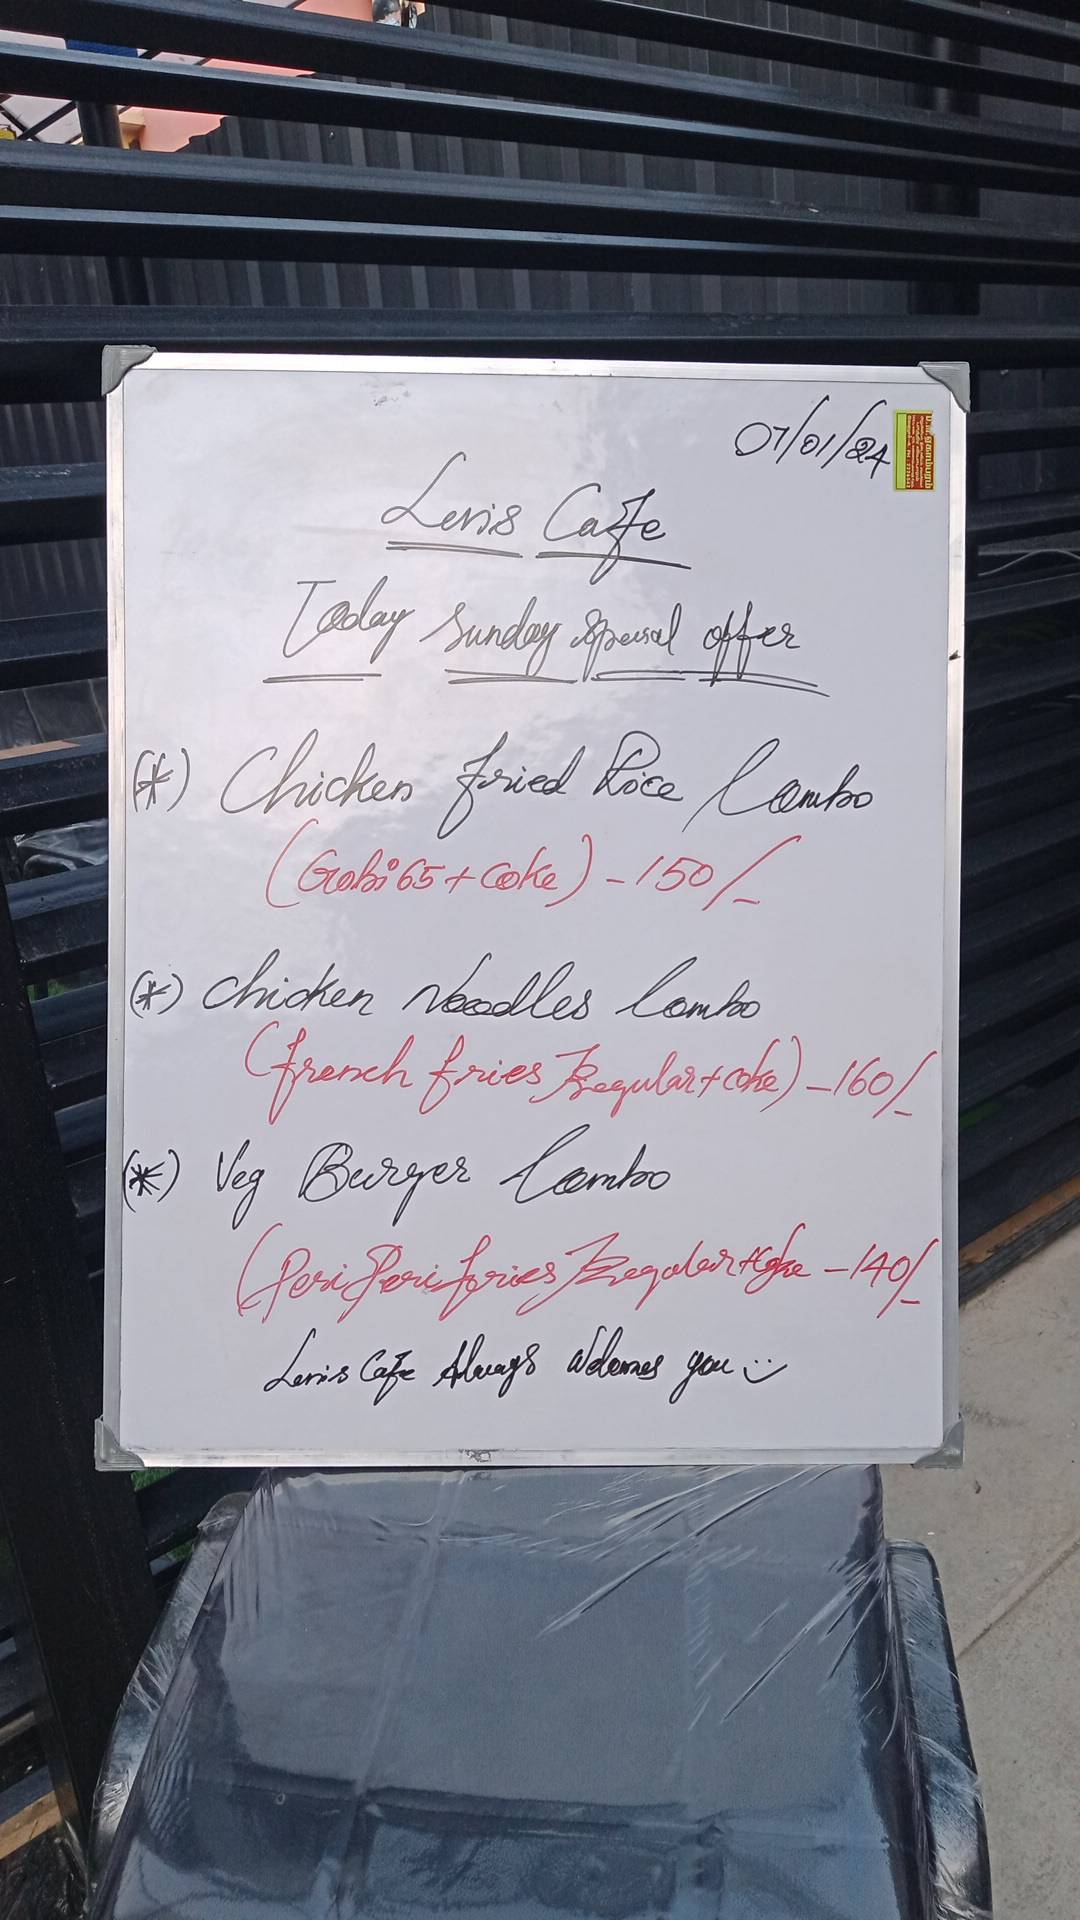 07/01/24
Levis Cafe
Today Sunday special offer
(*) Chicken fried Rice Combo
(Gobi 65 + Coke) - 150/-
(*) chicken Noodles Combo
(french fries Regular + coke) - 160/-
(*) Veg Burger Combo
(Peri Peri fries Regular + Coke - 140/-
Levis Cafe Always Welcomes you